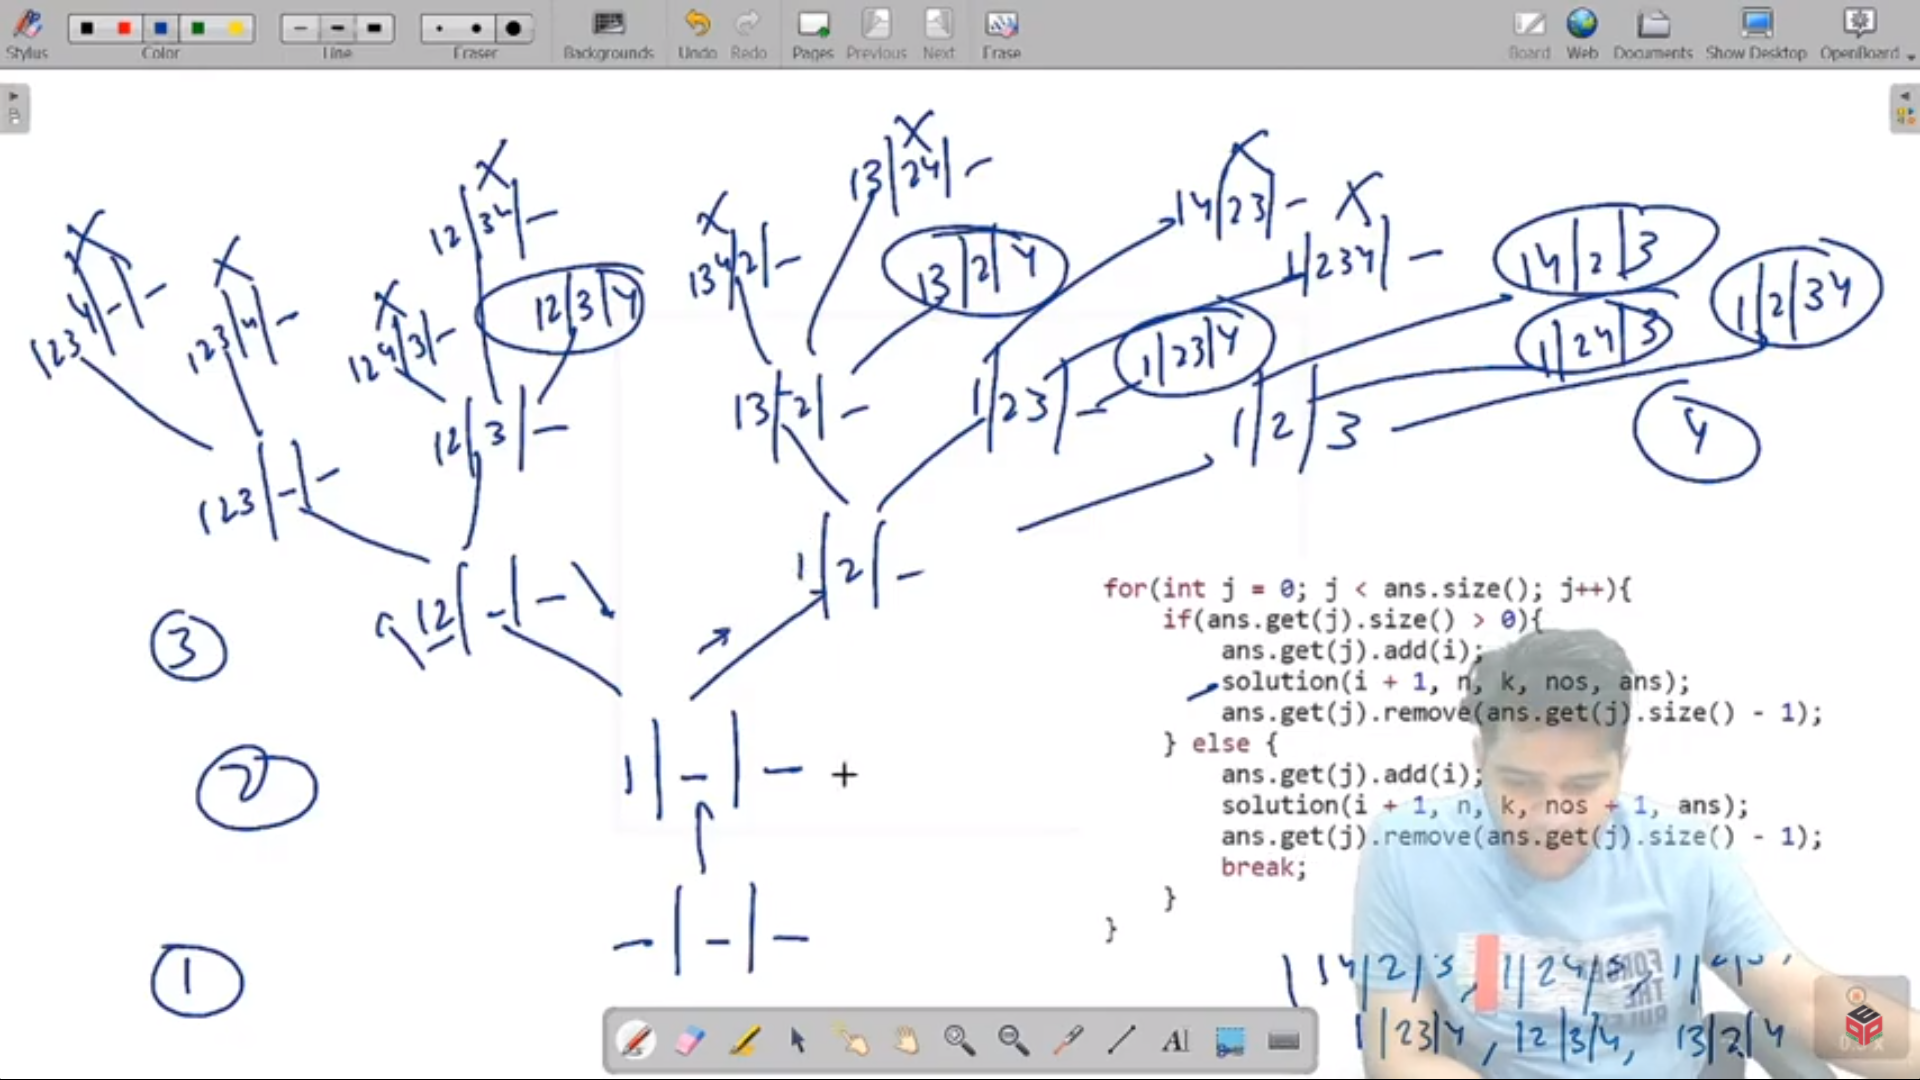 Stylus Color Line Eraser Backgrounds Undo Redo Pages Previous Next Erase Board Web Documents Show Desktop OpenBoard
X
13|24|-
X
12|34|-
X
14|23|-
X
1|234|-
14|2|3
1|2|34
X
1234|-|-
X
123|4|-
X
124|3|-
12|3|4
X
134|2|-
13|2|4
1|23|4
1|24|3
123|-|-
12|3|-
13|2|-
1|23|-
1|2|3
4
3
12|-|-
1|2|-
2
1|-|-
1
-|-|-
for(int j = 0; j < ans.size(); j++){
if(ans.get(j).size() > 0){
ans.get(j).add(i);
solution(i + 1, n, k, nos, ans);
ans.get(j).remove(ans.get(j).size() - 1);
} else {
ans.get(j).add(i);
solution(i + 1, n, k, nos + 1, ans);
ans.get(j).remove(ans.get(j).size() - 1);
break;
}
}
14|2|3, 1|24|3,
1|23|4, 12|3|4, 13|2|4